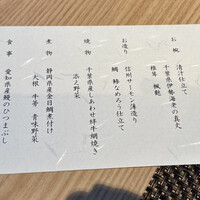 お椀
清汁仕立て
千葉県伊勢海老の真丈
椎茸 楓麩
お造り
信州サーモン薄造り
鯛 鯵なめろう仕立て
焼物
千葉県産しあわせ絆牛網焼き
添え野菜
煮物
静岡県産金目鯛煮付け
大根 牛蒡 青味野菜
食事
愛知県産鰻のひつまぶし